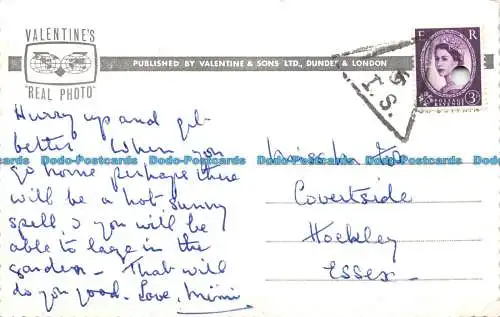 VALENTINE'S
"REAL PHOTO"
PUBLISHED BY VALENTINE & SONS LTD., DUNDEE & LONDON
E R
POSTAGE REVENUE
3D
I.S.
Hurry up and get
better. When you
go home perhaps there
will be a hot sunny
spell, & you will be
able to laze in the
garden – That will
do you good. Love, Mimi
Miss M.
Covertside
Hockley
Essex
Dodo-Postcards Dodo-Postcards Dodo-Postcards Dodo-Postcards Dodo-Postcards